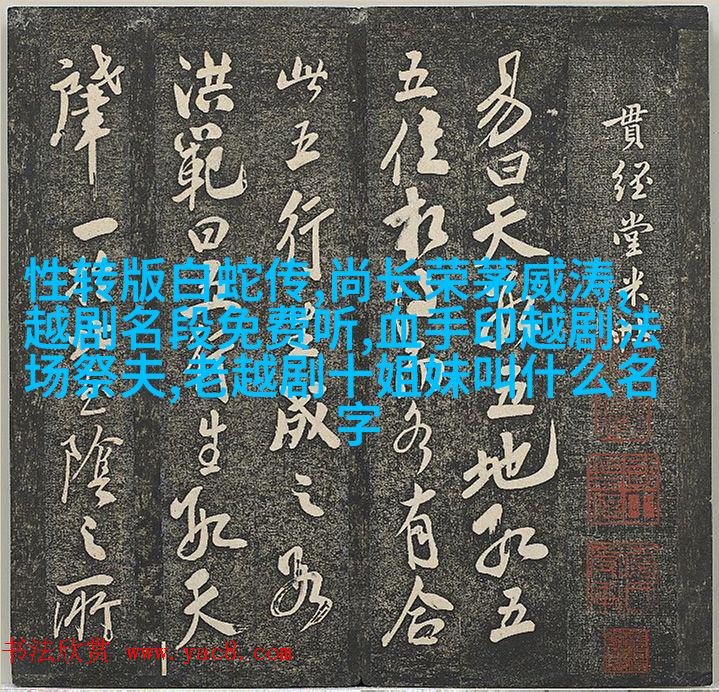 貫經堂米
易曰天五地數五
五位相各有合
此五行成之數
洪範曰五生數天
肇一陰之所
性转版白蛇传,尚长荣茅威涛,
越剧名段免费听,血手印越剧法
场祭夫,老越剧十姐妹叫什么名
字
书法欣赏 www.yac8.com